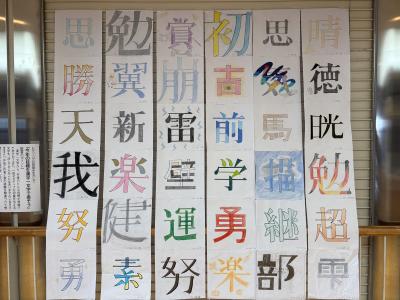 思 勉 賞 初 思 晴
勝 翼 崩 古 徳
天 新 雷 前 馬 晄
我 楽 壁 学 描 勉
努 健 運 勇 継 超
勇 素 努 楽 部 雫